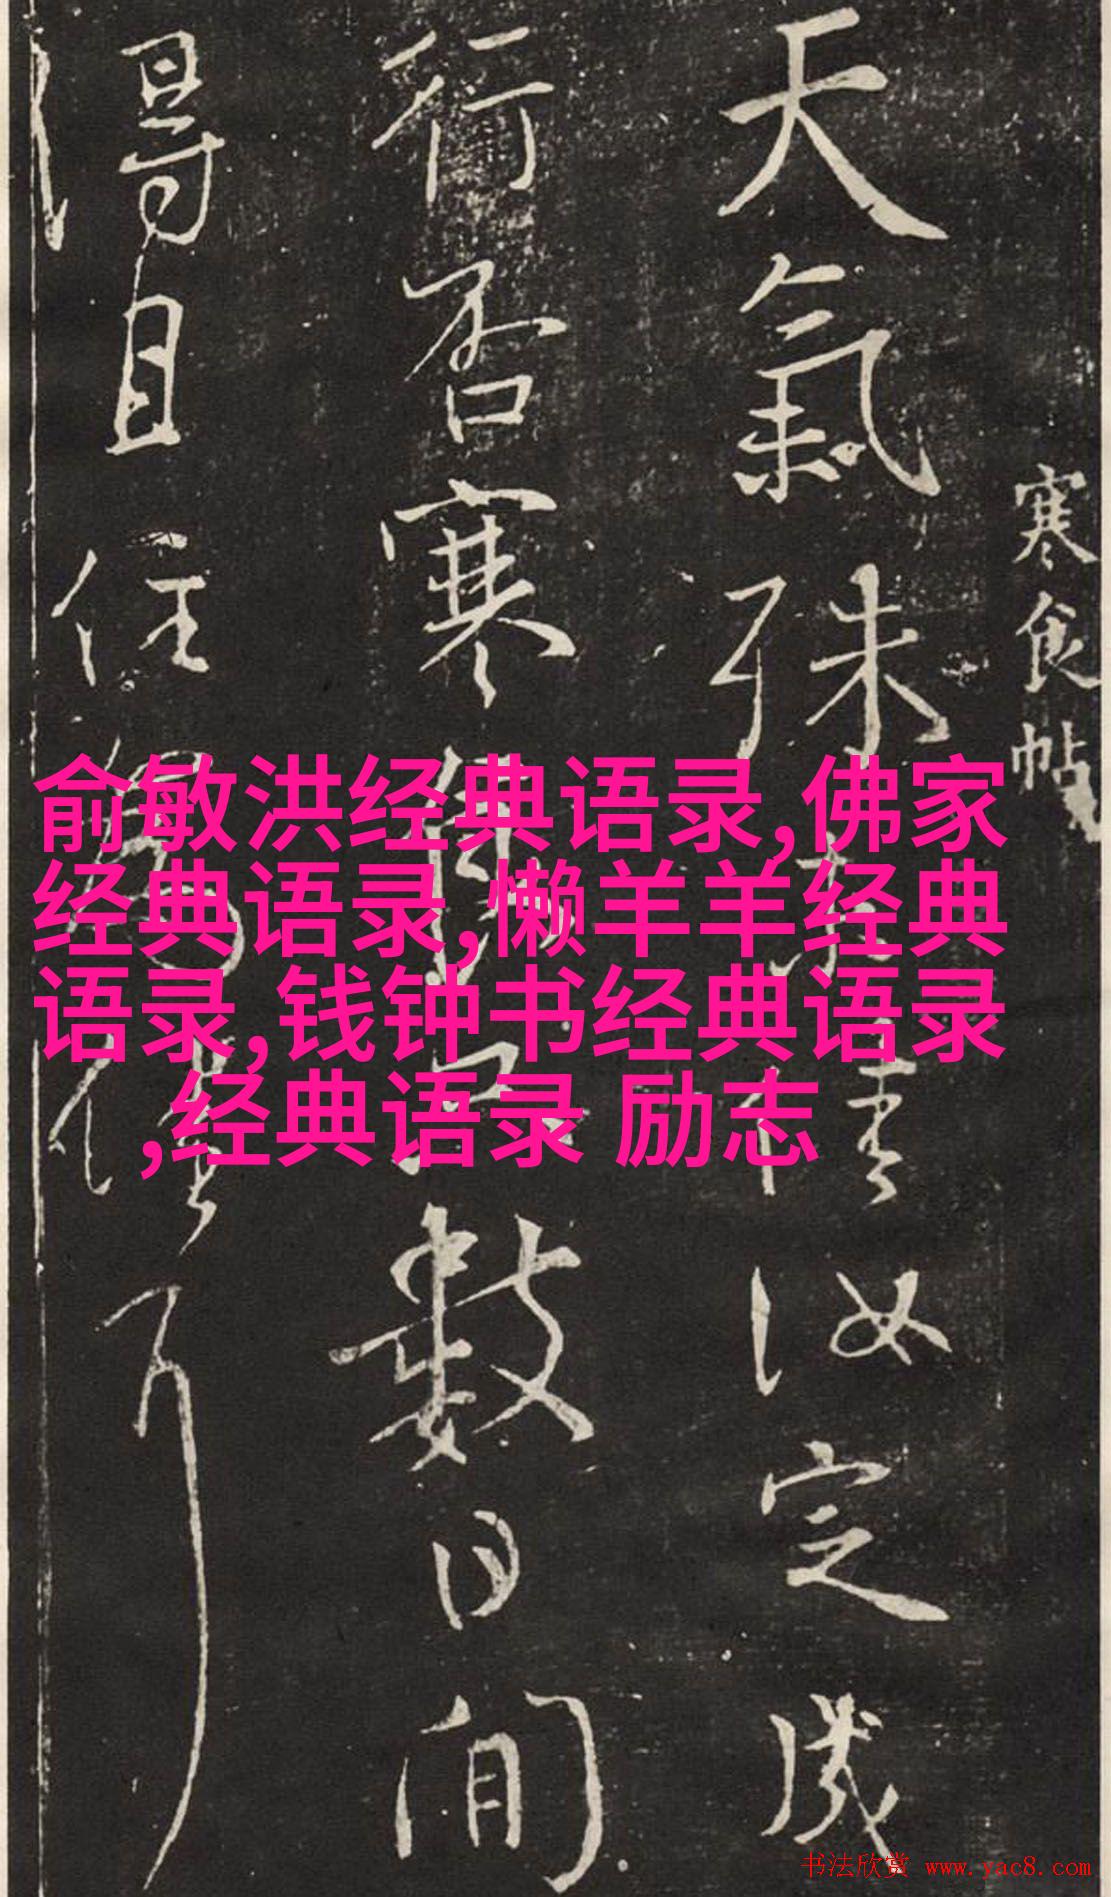 寒食帖
天氣殊未佳汝定成
行否寒食只數日間
得且住為佳耳
俞敏洪经典语录,佛家
经典语录,懒羊羊经典
语录,钱钟书经典语录
,经典语录 励志
书法欣赏 www.yac8.com